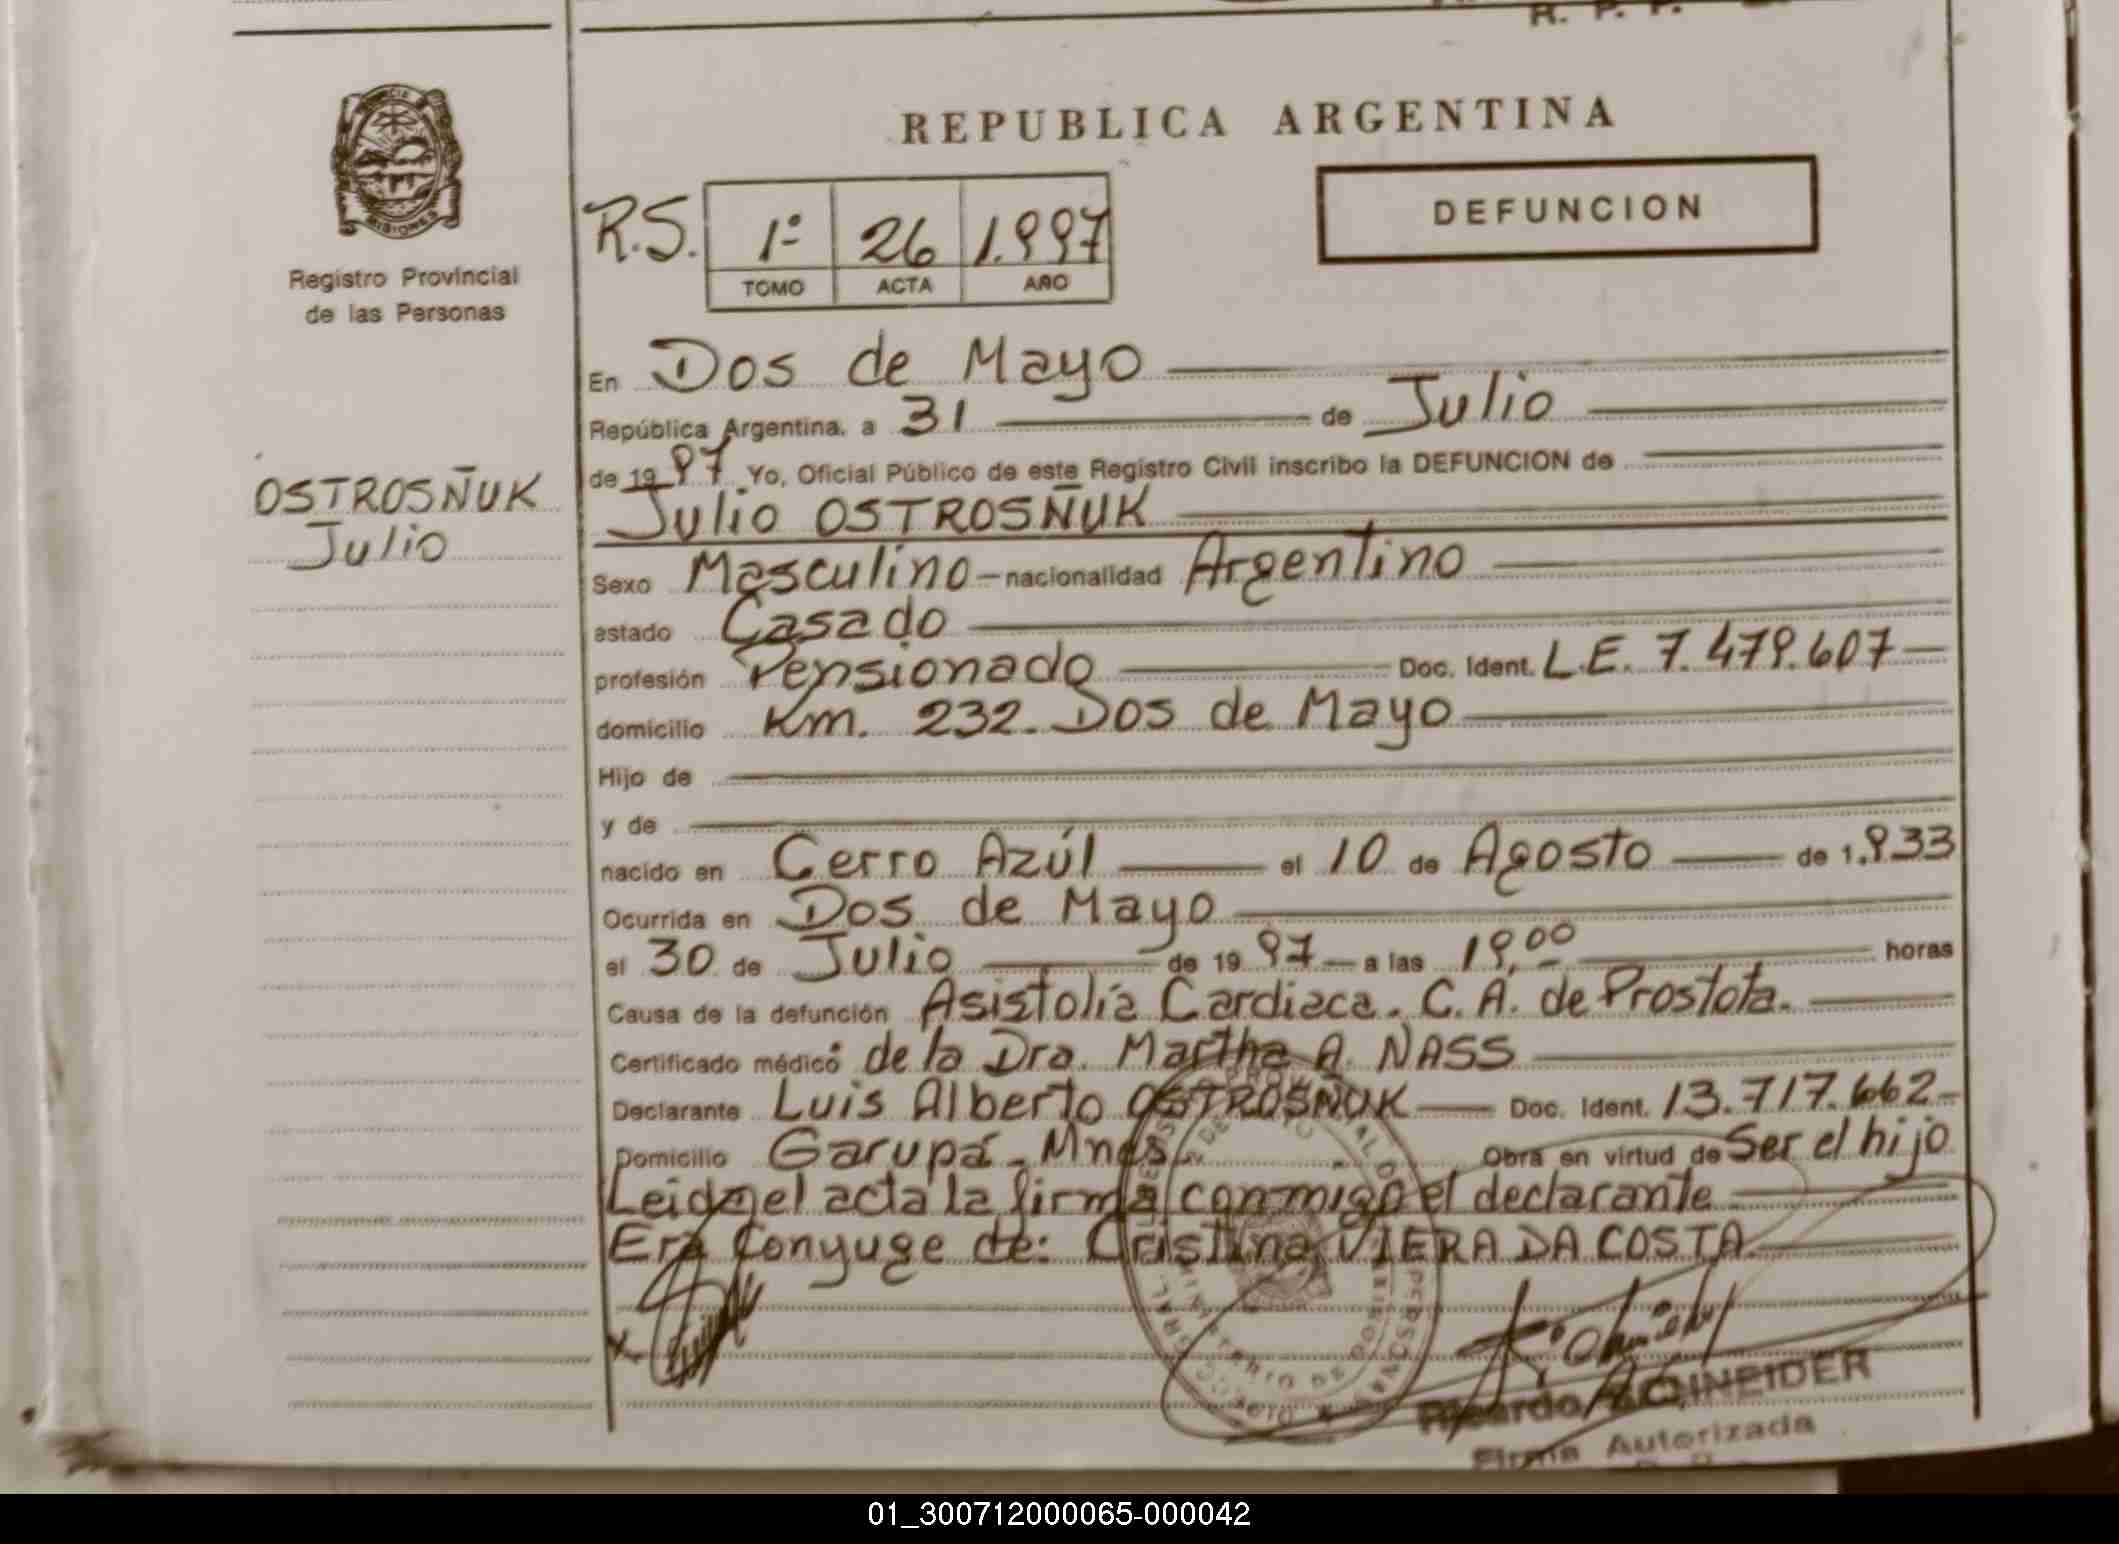 R. P. P.
REPUBLICA ARGENTINA
MISIONES
Registro Provincial
de las Personas
R.S. 1º 26 1.997
TOMO ACTA AÑO
DEFUNCION
En Dos de Mayo
República Argentina, a 31 de Julio
de 1997 Yo, Oficial Público de este Registro Civil inscribo la DEFUNCION de
OSTROSÑUK
Julio
Julio OSTROSÑUK
Sexo Masculino - nacionalidad Argentino
estado Casado
profesión Pensionado Doc. Ident. L.E. 7.479.607
domicilio Km. 232. Dos de Mayo
Hijo de
y de
nacido en Cerro Azúl el 10 de Agosto de 1.933
Ocurrida en Dos de Mayo
el 30 de Julio de 1997 a las 19,00 horas
Causa de la defunción Asistolia Cardiaca. C.A. de Prostota.
Certificado médico de la Dra. Martha A. NASS
Declarante Luis Alberto OSTROSÑUK Doc. Ident. 13.717.662
Domicilio Garupá - Mnes. Obra en virtud de Ser el hijo
Leida el acta la firma conmigo el declarante
Era Conyuge de: Cristina VIERA DA COSTA
Ricardo SCHNEIDER
Firma Autorizada
01_300712000065-000042